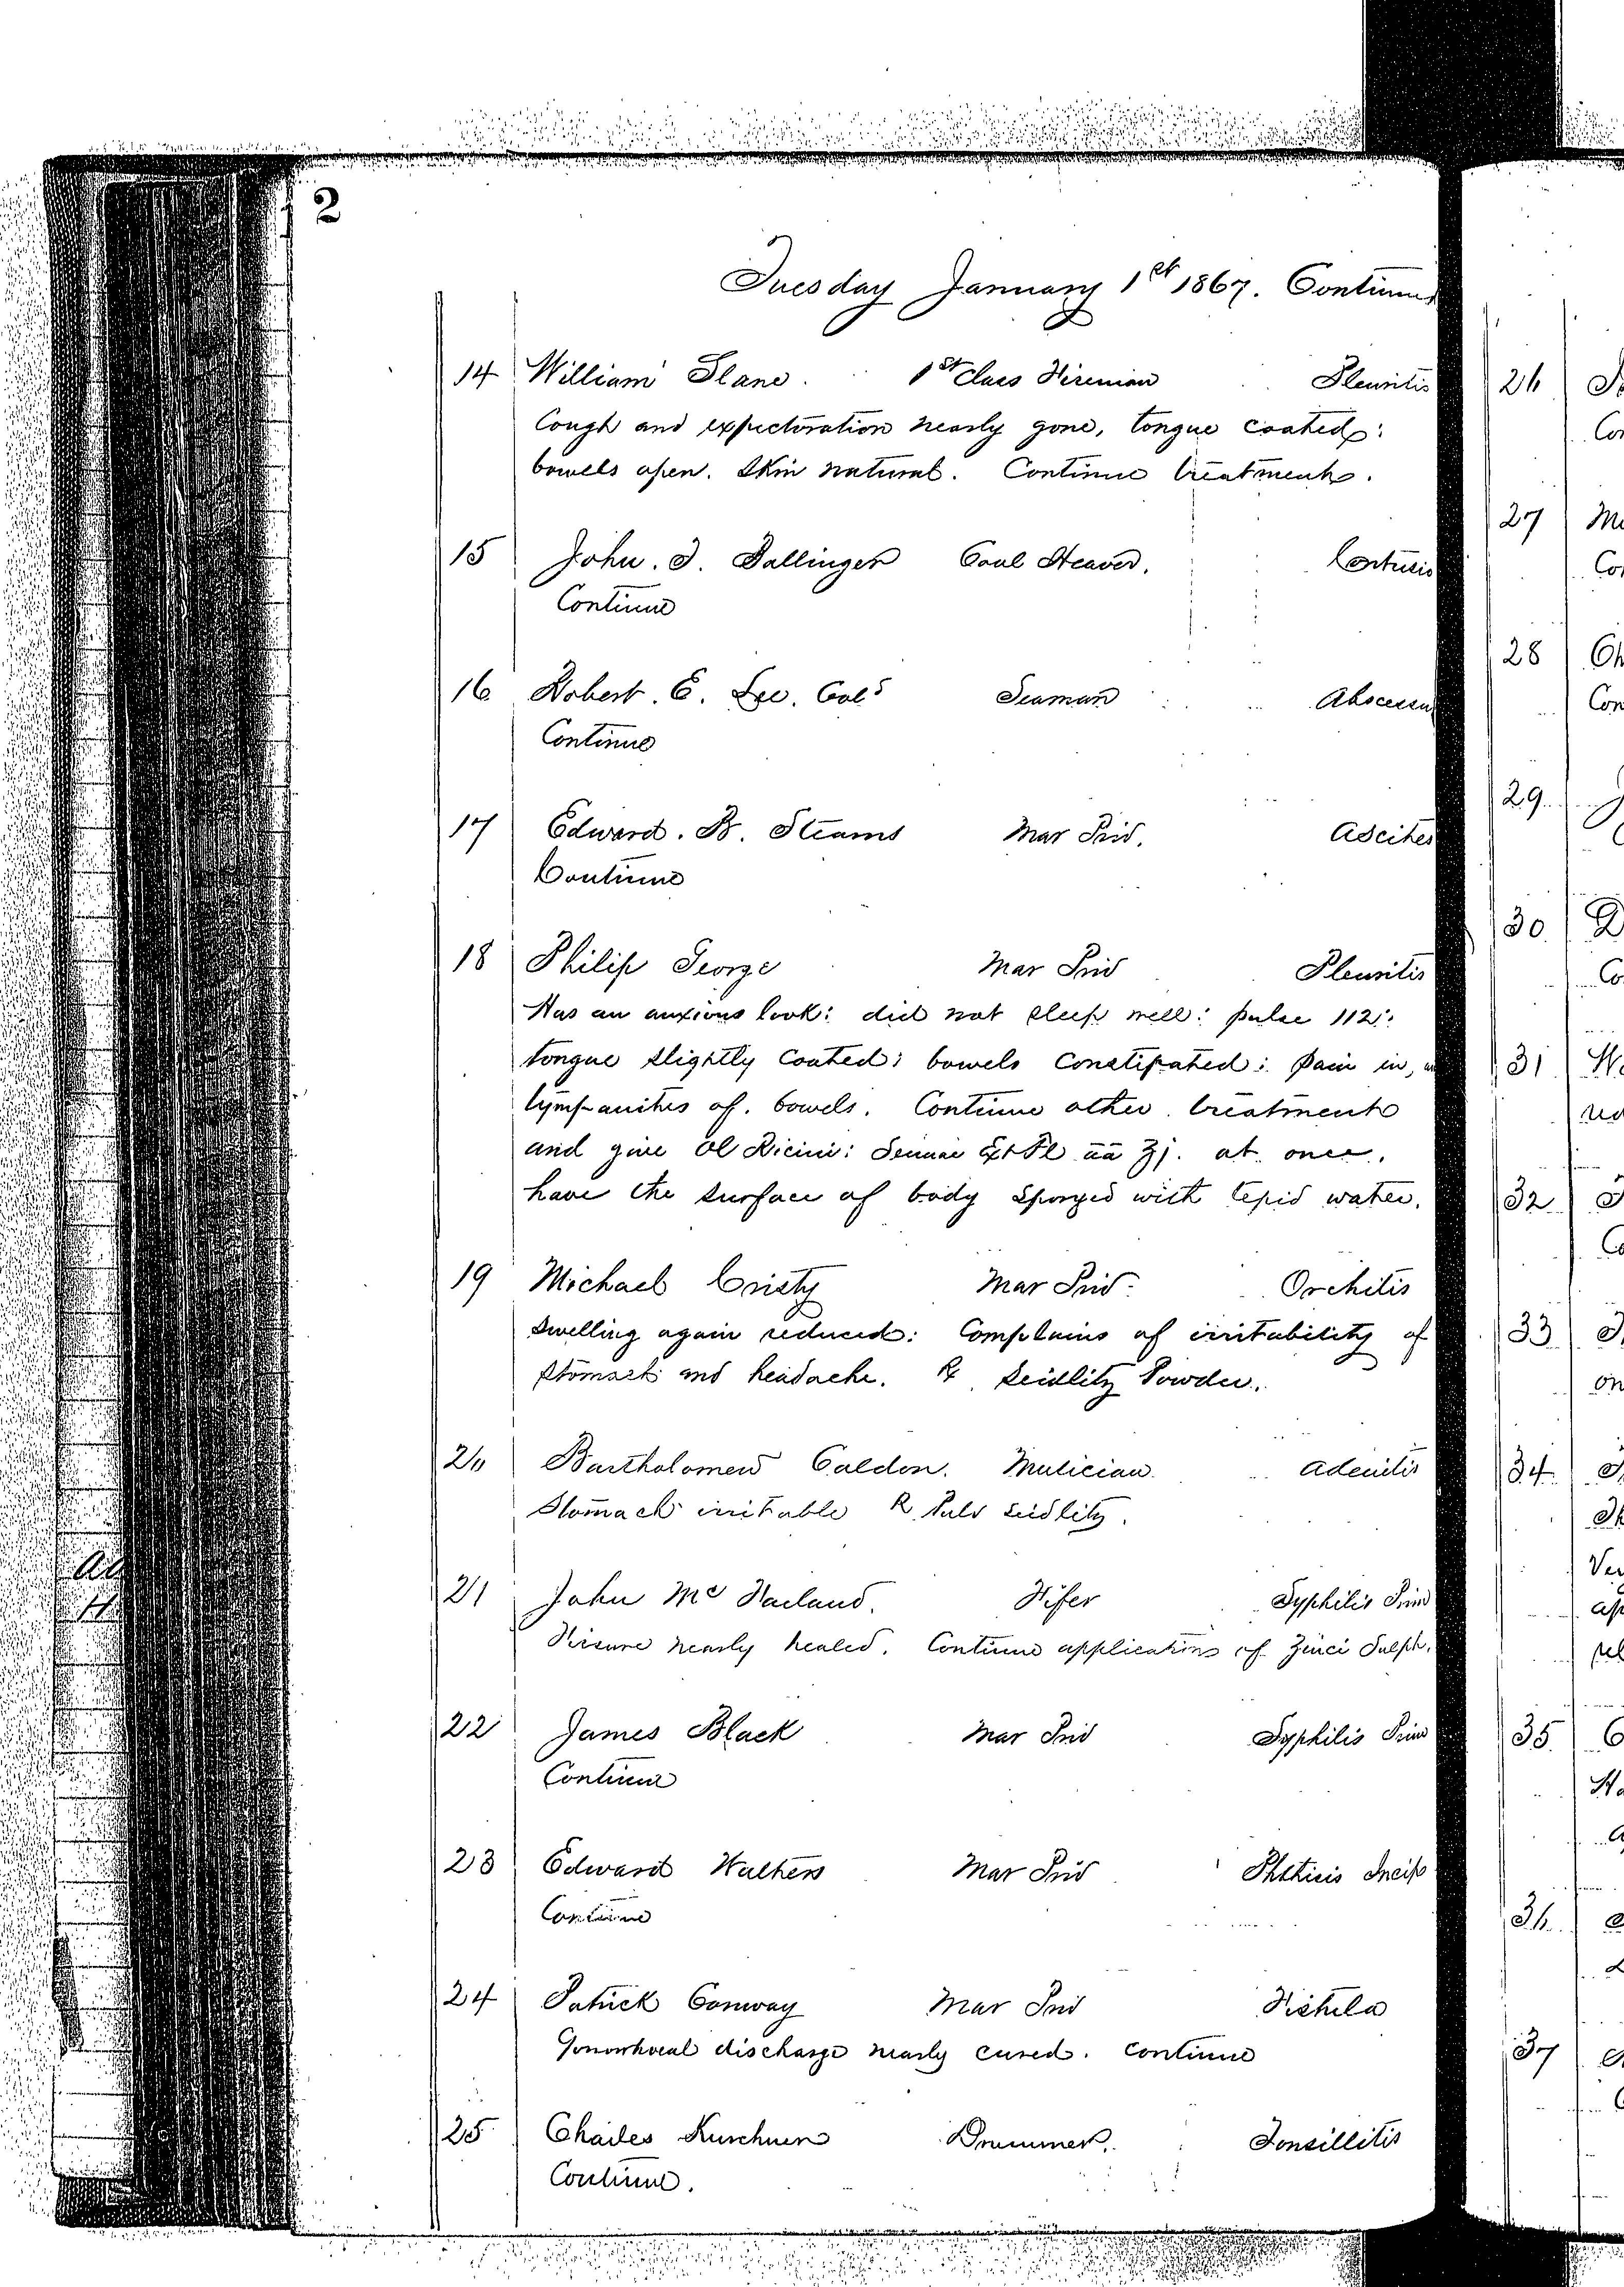 2
Tuesday January 1st 1867. Continued
14 William Slane. 1st Class Fireman Pleuritis
Cough and expectoration nearly gone, tongue coated:
bowels open. Skin natural. Continue treatment.
15 John. J. Ballinger Coal Heaver. Contusio
Continue
16 Robert. E. Lee. Cold Seaman Abscessus
Continue
17 Edward. B. Stearns Mar Priv. Ascites
Continue
18 Philip George Mar Priv Pleuritis
Has an anxious look: did not sleep well: pulse 112:
tongue slightly coated: bowels constipated: pain in,
tympanites of. bowels. Continue other treatment
and give Ol Ricini: Sennae Ext Fl āā ʒj. at once.
have the surface of body sponged with tepid water.
19 Michael Cristy Mar Priv. Orchitis
Swelling again reduced: Complains of irritability of
stomach and headache. ℞ Seidlitz Powder.
20 Bartholomew Caldon. Musician. Adenitis
Stomach irritable ℞ Pulv Seidlitz.
21 John Mc Farland. Fifer Syphilis Prim
Fissure nearly healed. Continue applications of Zinci Sulph.
22 James Black Mar Priv Syphilis Prim
Continue
23 Edward Walters Mar Priv Phthisis Incip
Continue
24 Patrick Conway Mar Priv Fistula
Gonorrhoeal discharge nearly cured. Continue
25 Charles Kurchner Drummer. Tonsillitis
Continue.
26
Co
27 Mc
Co
28 Ch
Con
29
30 D
Co
31 W
32
Co
33
on
34
Ver
ap
rel
35 C
Ha
36
37